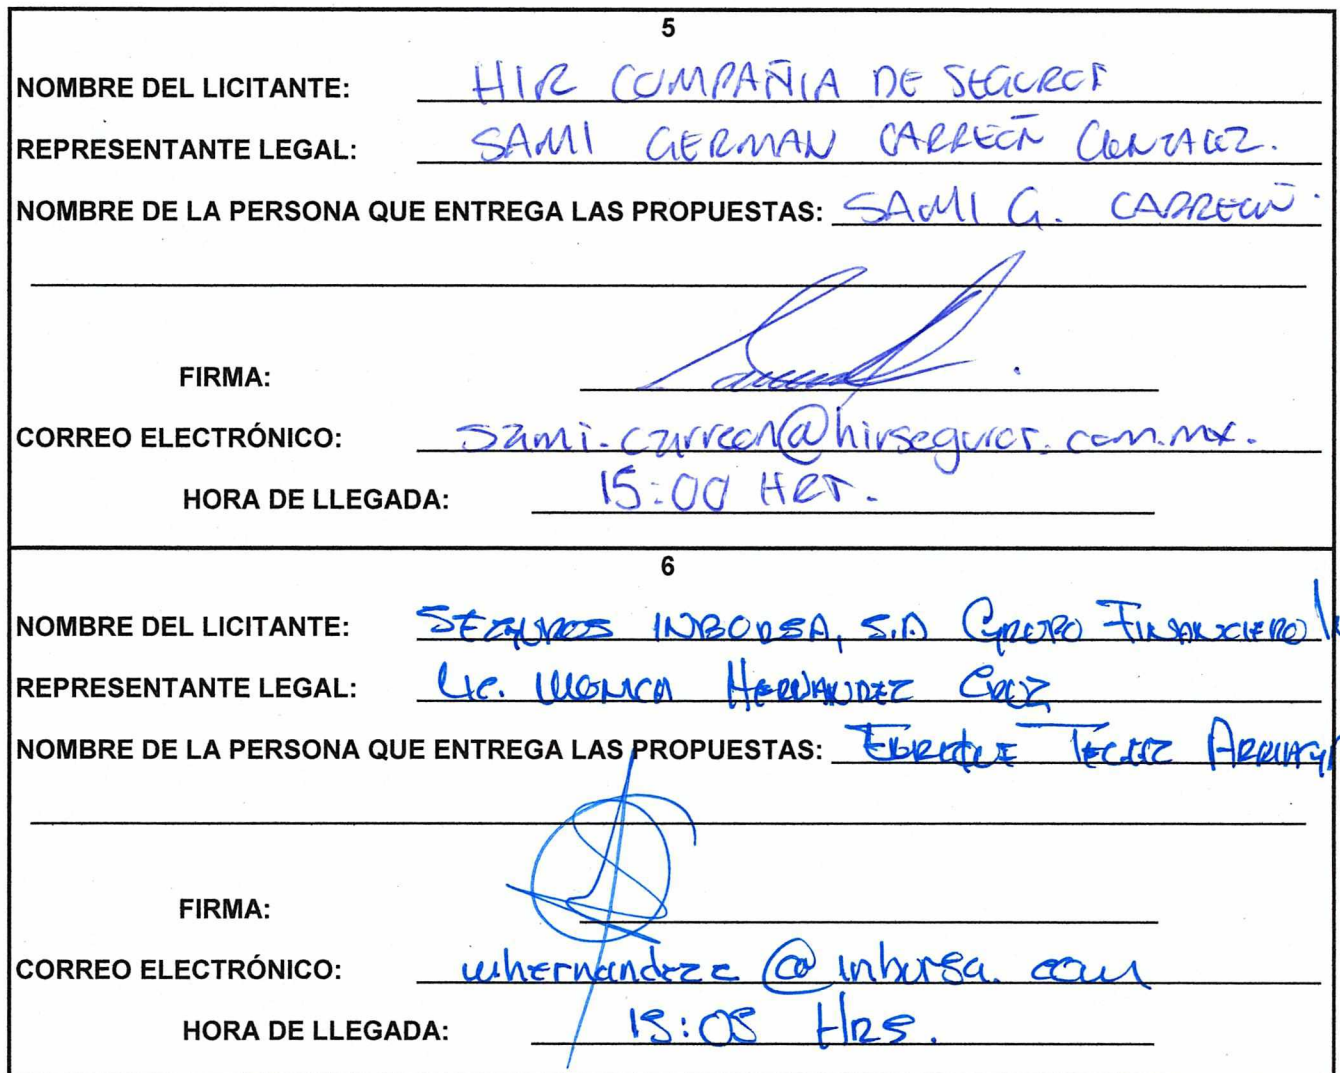 5
NOMBRE DEL LICITANTE: HIR COMPAÑIA DE SEGUROS
REPRESENTANTE LEGAL: SAMI GERMAN CARREÓN GONZALEZ.
NOMBRE DE LA PERSONA QUE ENTREGA LAS PROPUESTAS: SAMI G. CARREÓN.
FIRMA:
CORREO ELECTRÓNICO: sami.carreon@hirseguros.com.mx.
HORA DE LLEGADA: 15:00 HRS.
6
NOMBRE DEL LICITANTE: SEGUROS INBURSA, S.A GRUPO FINANCIERO
REPRESENTANTE LEGAL: LIC. MONICA HERNANDEZ CRUZ
NOMBRE DE LA PERSONA QUE ENTREGA LAS PROPUESTAS: ENRIQUE
FIRMA:
CORREO ELECTRÓNICO: mhernandezc@inbursa.com
HORA DE LLEGADA: 15:05 Hrs.